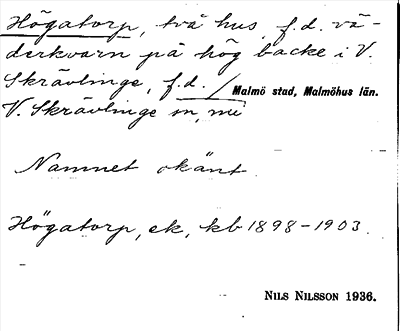 Högatorp, två hus, f.d. vä-
derkvarn på hög backe i V.
Skrävlinge, f.d. / Malmö stad, Malmöhus län.
V. Skrävlinge sn, mi
Namnet okänt.
Högatorp, ek, kb 1898-1903.
NILS NILSSON 1936.